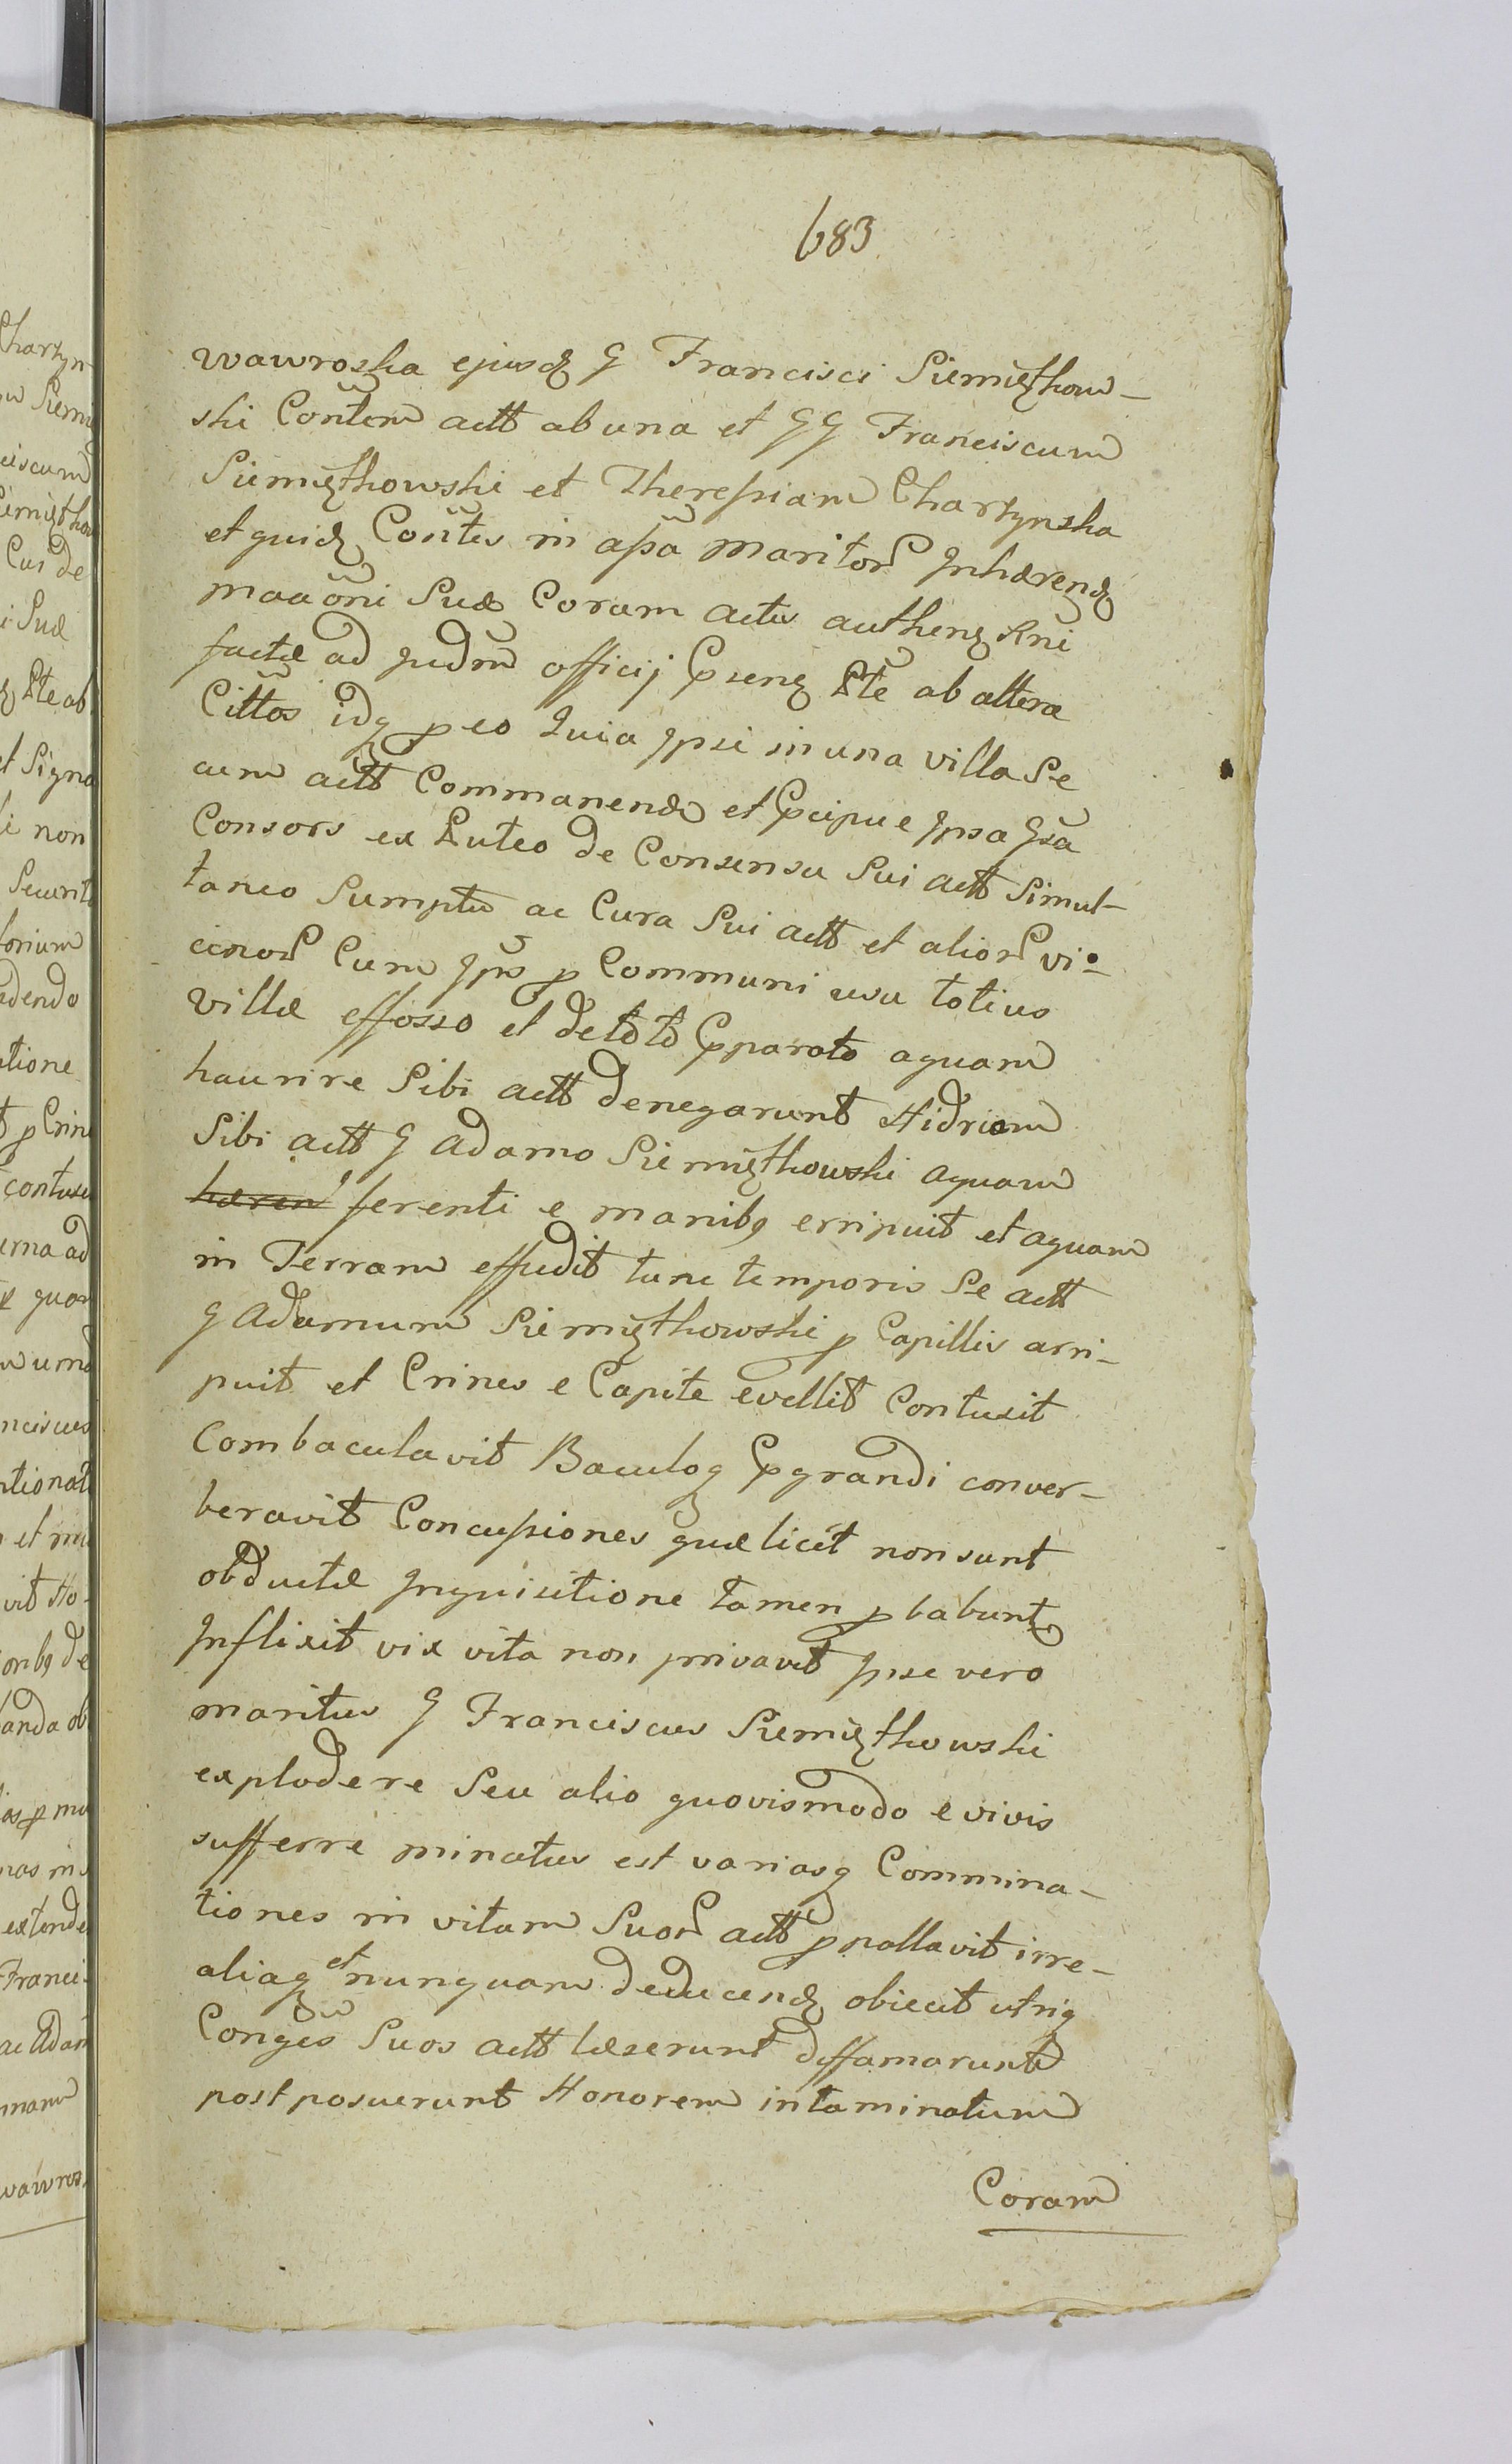 683
Wawroska ejusdʒ G Francisci Siemiętkow-
ski Contẽm actt ab una et GG Franciscum
Siemiętkowski et Theressiam Charzynska
et quidʒ Contes in assa Maritor Inhærendʒ
Maãoni Suæ Coram actis authenʒ Rñi
factæ ad Judm̃ officij Pseng Pte ab altera
Cittos idq p eo Quia Ipsi in una villa Se
cum actt Commanendo et Pcipue Ipsa Gsa
Consors ex Puteo de Consensu Sui actt Simul-
taneo Sumptu ac Cura Sui actt et alior vi-
cinor Cum Ips p Communi usu totius
Villæ effosso et de toto Pparato aquam
haurire Sibi actt denegarunt Hidriam
Sibi actt G Adamo Siemiętkowski aquam
ferenti e manibq erripuit et aquam
in Terram effudit tunc temporis Se actt
G Adamum Siemiętkowski p Capillis arri-
puit et Crines e Capite evellit Contusit
Combaculavit Baculoq Pgrandi conver-
beravit Concussiones quæ licet non sunt
obductæ Inquisitione tamen p babuntʒ
Inflixit vix vita non privavit Ipse vero
maritus G Franciscus Siemiętkowski
explodere Seu alio quovismodo e vivis
sufferre minatus est variasq Commina-
tiones in vitam Suor actt p nallavit irre-
aliaq et nunquam deducendʒ obiecit utriq
Conges Suos actt læserunt diffamarunt
postposuerunt Honorem intaminatum
Coram